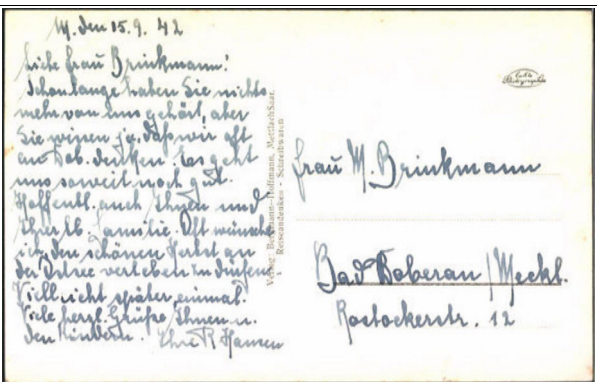 M. den 15.9.42
Liebe Frau Brinkmann!
Schon lange haben Sie nichts
mehr von uns gehört, aber
Sie wissen ja, daß wir oft
an Dob. denken. Es geht
uns soweit noch gut.
Hoffentl. auch Ihnen und
Ihrer lb. Familie. Oft wünsche
ich, den schönen Herbst an
der Ostsee verleben zu dürfen.
Vielleicht später einmal.
Viele herzl. Grüße Ihnen u.
den Kindern. Ihre R Hansen
Verlag: Hoffmann, Mettlach Saar.
Reiseandenken - Schreibwaren
Echte
Photographie
Frau M. Brinkmann
Bad Doberan / Meckl.
Rostockerstr. 12